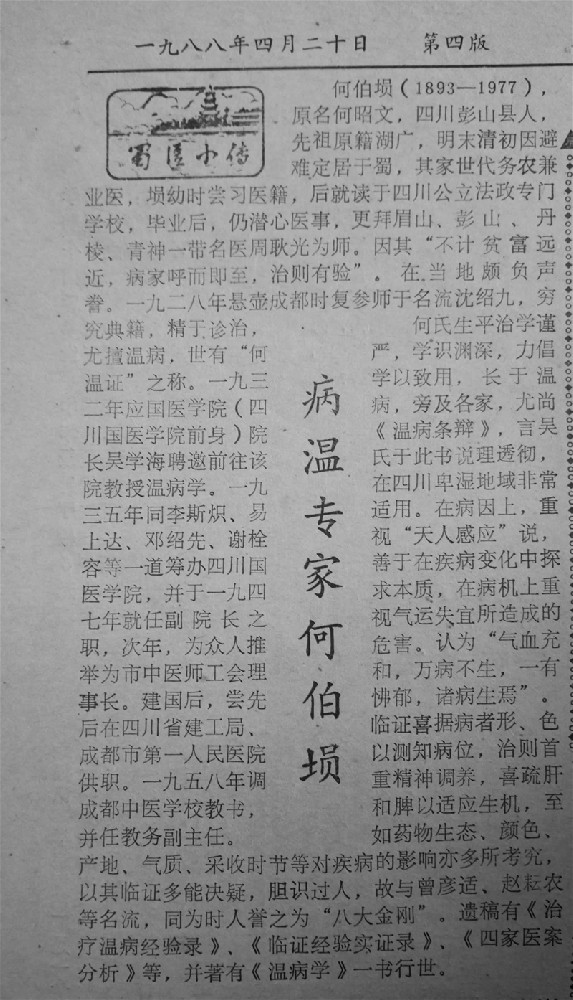 一九八八年四月二十日　第四版
蜀医小传
何伯埙（1893—1977），
原名何昭文，四川彭山县人，
先祖原籍湖广，明末清初因避
难定居于蜀，其家世代务农兼
业医，埙幼时尝习医籍，后就读于四川公立法政专门
学校，毕业后，仍潜心医事，更拜眉山、彭山、丹
棱、青神一带名医周耿光为师。因其“不计贫富远
近，病家呼而即至，治则有验”。在当地颇负声
誉。一九二八年悬壶成都时复参师于名流沈绍九，穷
究典籍，精于诊治，
尤擅温病，世有“何
温证”之称。一九三
二年应国医学院（四
川国医学院前身）院
长吴学海聘邀前往该
院教授温病学。一九
三五年同李斯炽、易
上达、邓绍先、谢栓
容等一道筹办四川国
医学院，并于一九四
七年就任副院长之
职，次年，为众人推
举为市中医师工会理
事长。建国后，尝先
后在四川省建工局、
成都市第一人民医院
供职。一九五八年调
成都中医学校教书，
并任教务副主任。
病温专家何伯埙
何氏生平治学谨
严，学识渊深，力倡
学以致用，长于温
病，旁及各家，尤尚
《温病条辩》，言吴
氏于此书说理透彻，
在四川卑湿地域非常
适用。在病因上，重
视“天人感应”说，
善于在疾病变化中探
求本质，在病机上重
视气运失宜所造成的
危害。认为“气血充
和，万病不生，一有
怫郁，诸病生焉”。
临证喜据病者形、色
以测知病位，治则首
重精神调养，喜疏肝
和脾以适应生机，至
如药物生态、颜色、
产地、气质、采收时节等对疾病的影响亦多所考究，
以其临证多能决疑，胆识过人，故与曾彦适、赵耘农
等名流，同为时人誉之为“八大金刚”。遗稿有《治
疗温病经验录》、《临证经验实证录》、《四家医案
分析》等，并著有《温病学》一书行世。